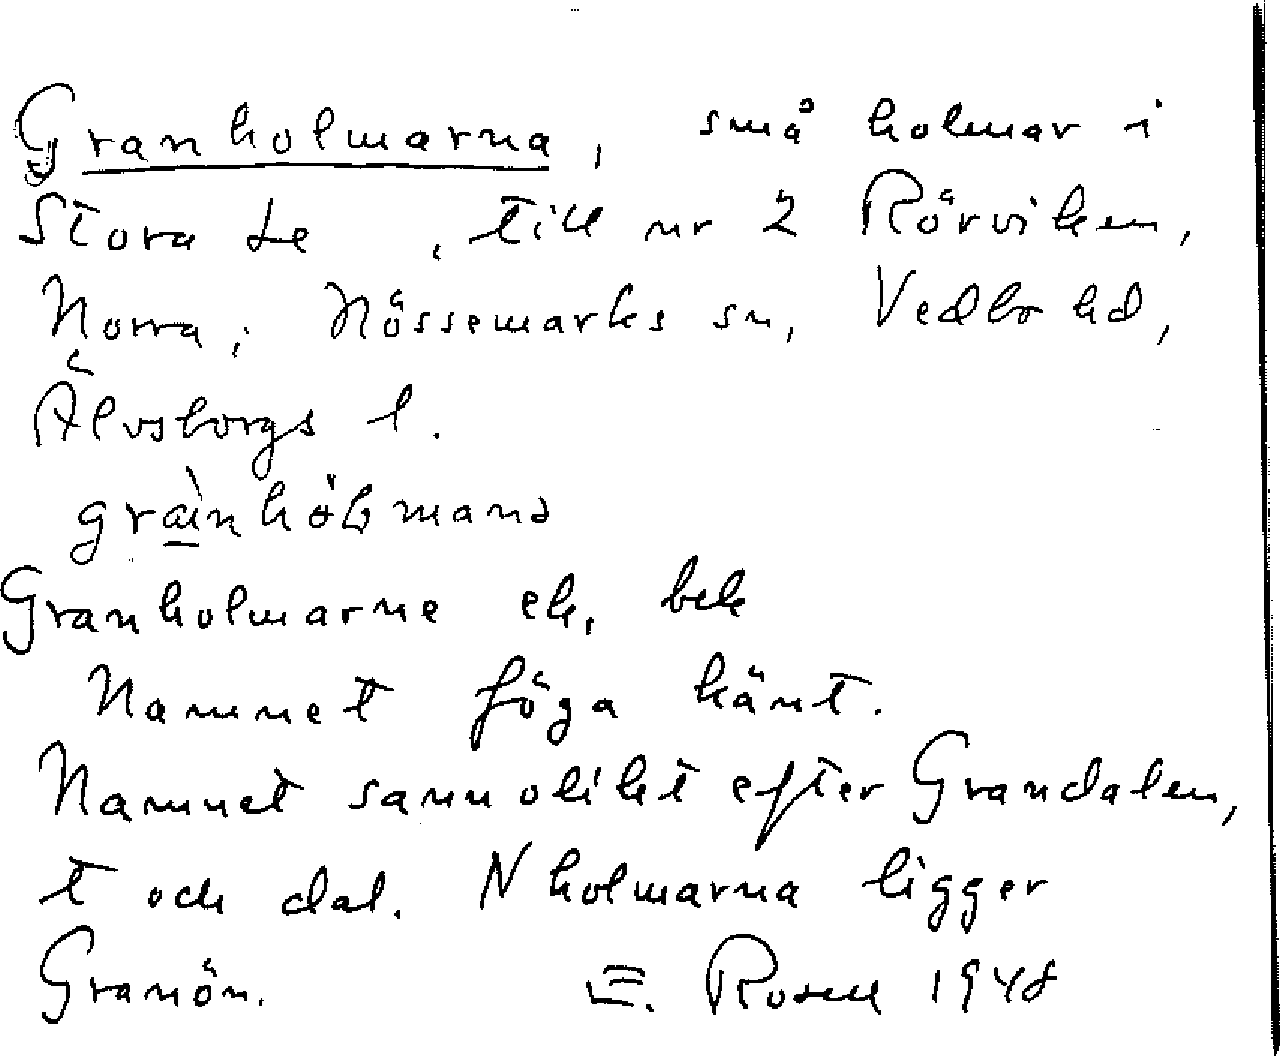 Granholmarna, små holmar i
Stora Le, till nr 2 Rörviken,
Norra; Nössemarks sn, Vedbo hd,
Älvsborgs l.
Granholmarne ek, bek
Namnet föga känt.
Namnet sannolikt efter Grandalen,
t och dal. N holmarna ligger
Granön. E. Rosell 1948